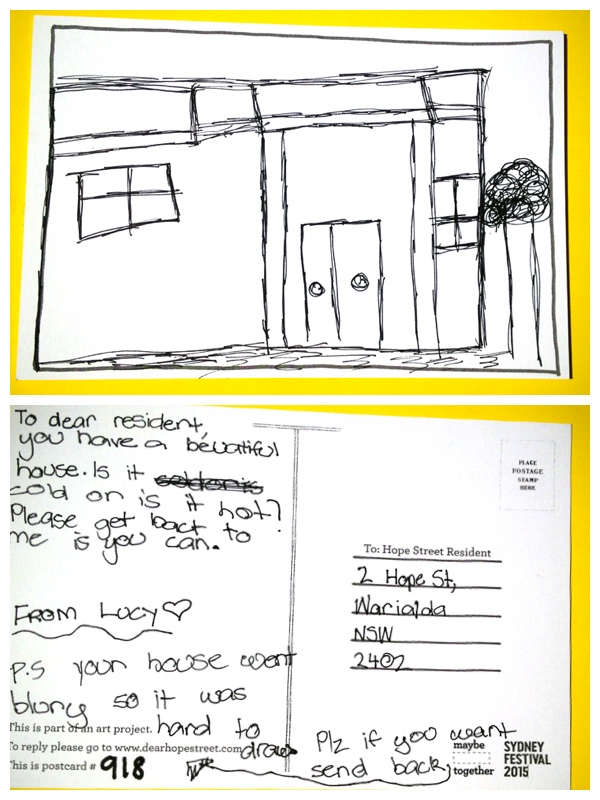 To dear resident,
you have a béuatiful
house. Is it
cold on is it hot?
Please get bact to
me is you can.
FROM LUCY♡
P.S your house went
blury so it was
hard to
draw
This is part of an art project.
To reply please go to www.dearhopestreet.com
This is postcard # 918
PLACE
POSTAGE
STAMP
HERE
To: Hope Street Resident
2 Hope St,
Warialda
NSW
2402
Plz if you want
send back
maybe
together
SYDNEY
FESTIVAL
2015